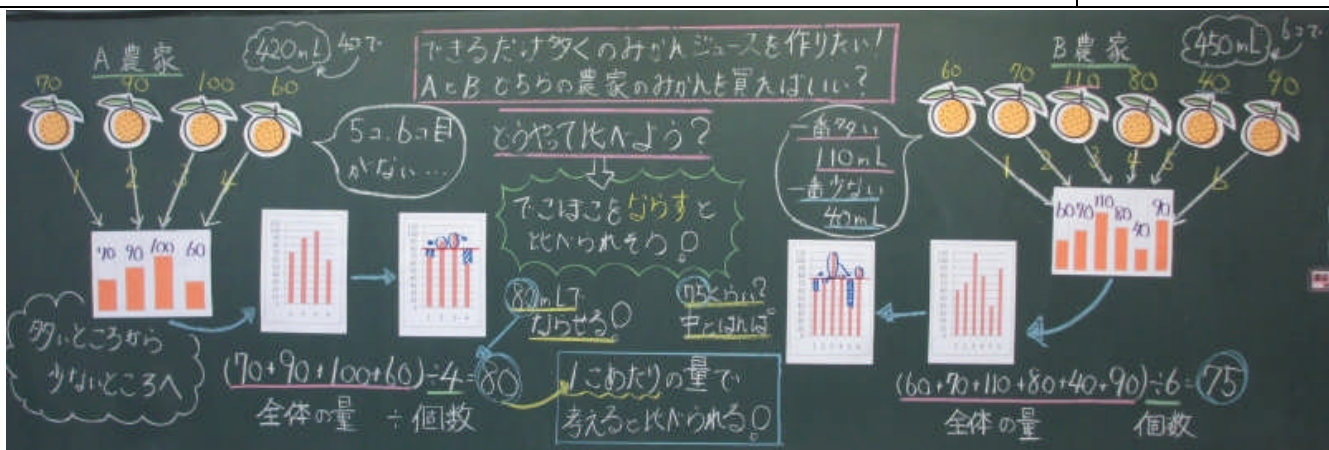 A農家
420mL
4コで
70 90 100 60
1 2 3 4
5コ、6コ目
がない…
70 90 100 60
多いところから
少ないところへ
(70+90+100+60)÷4=80
全体の量 ÷ 個数
できるだけ多くのみかんジュースを作りたい!
AとBどちらの農家のみかんを買えばいい?
どうやって比べよう?
でこぼこをならすと
比べられそう。
80mLで
ならせる。
75くらい?
1こあたりの量で
考えると比べられる。
B農家
450mL
6コで
60 70 110 80 40 90
1 2 3 4 5 6
一番多い
110mL
一番少ない
40mL
60 70 110 80 40 90
(60+70+110+80+40+90)÷6=75
全体の量 個数